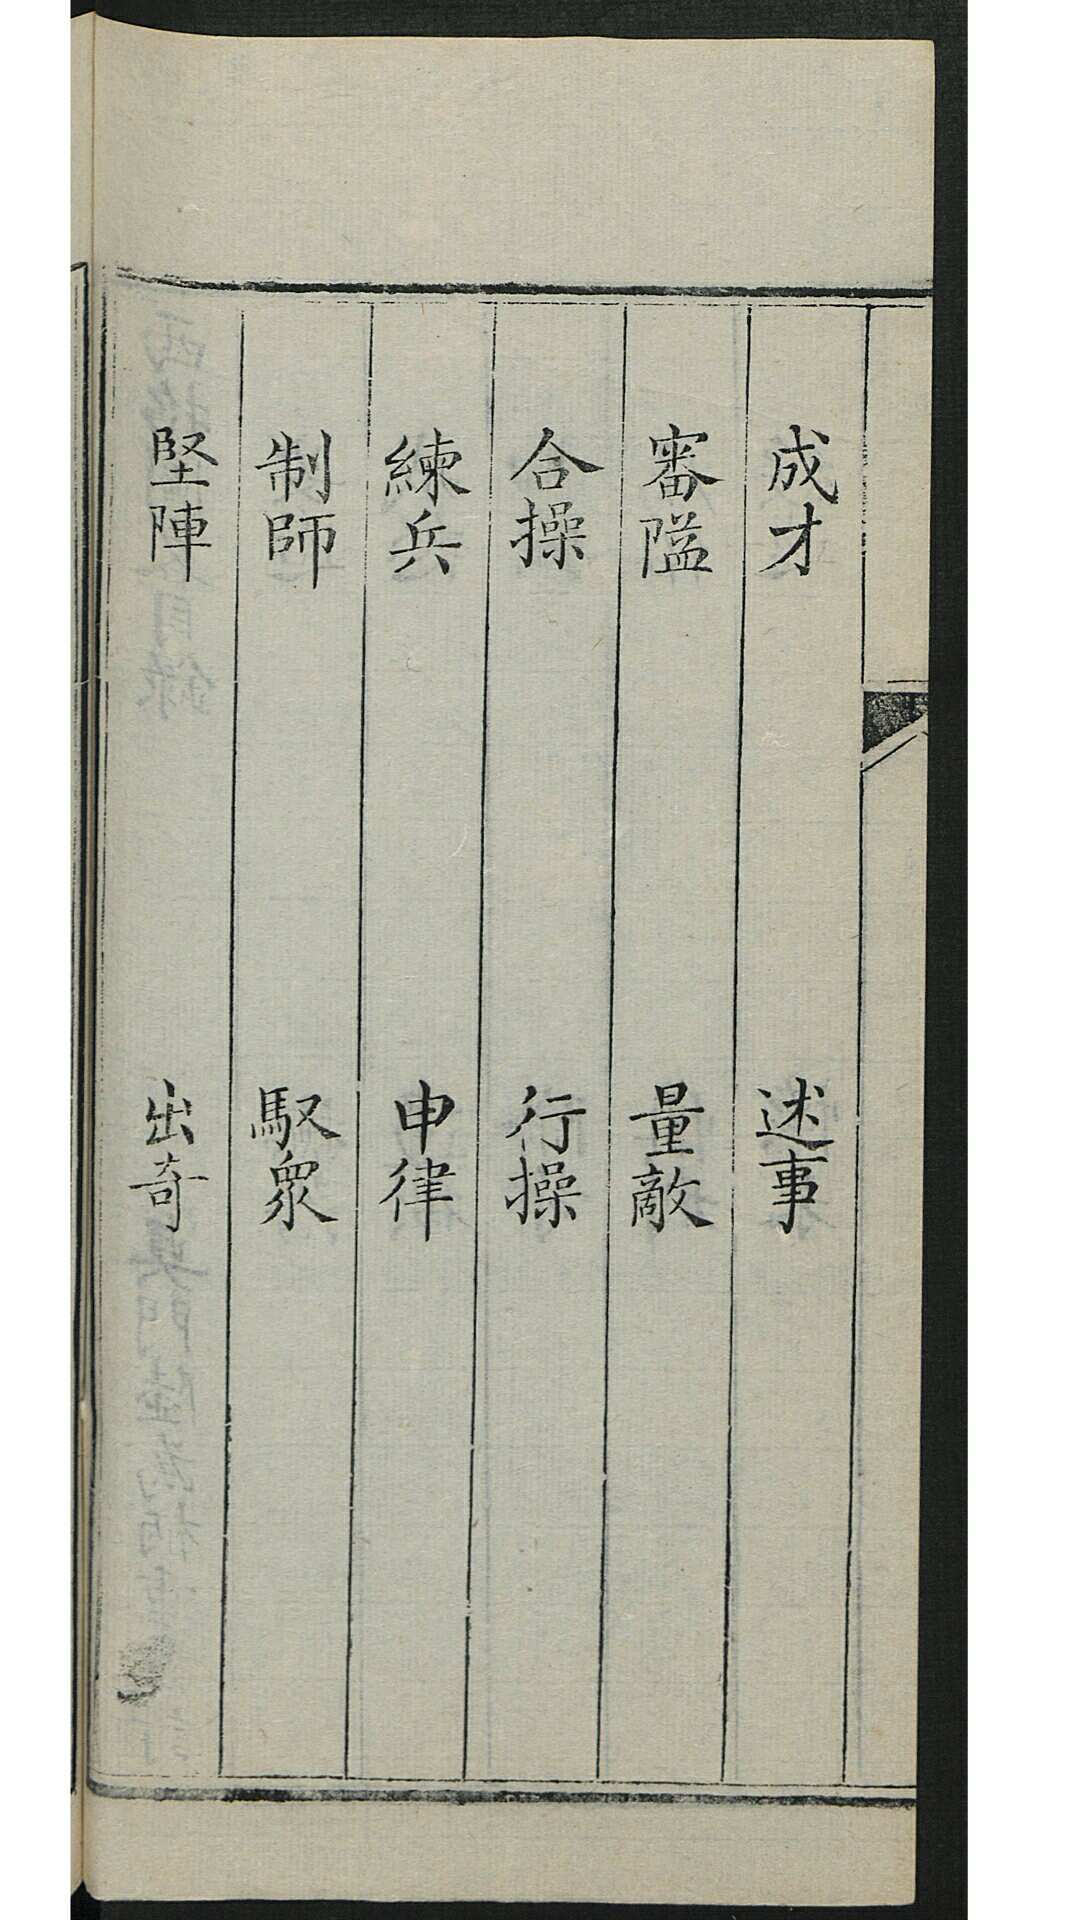 成才　述事
審隘　量敵
合操　行操
練兵　申律
制師　馭眾
堅陣　出奇